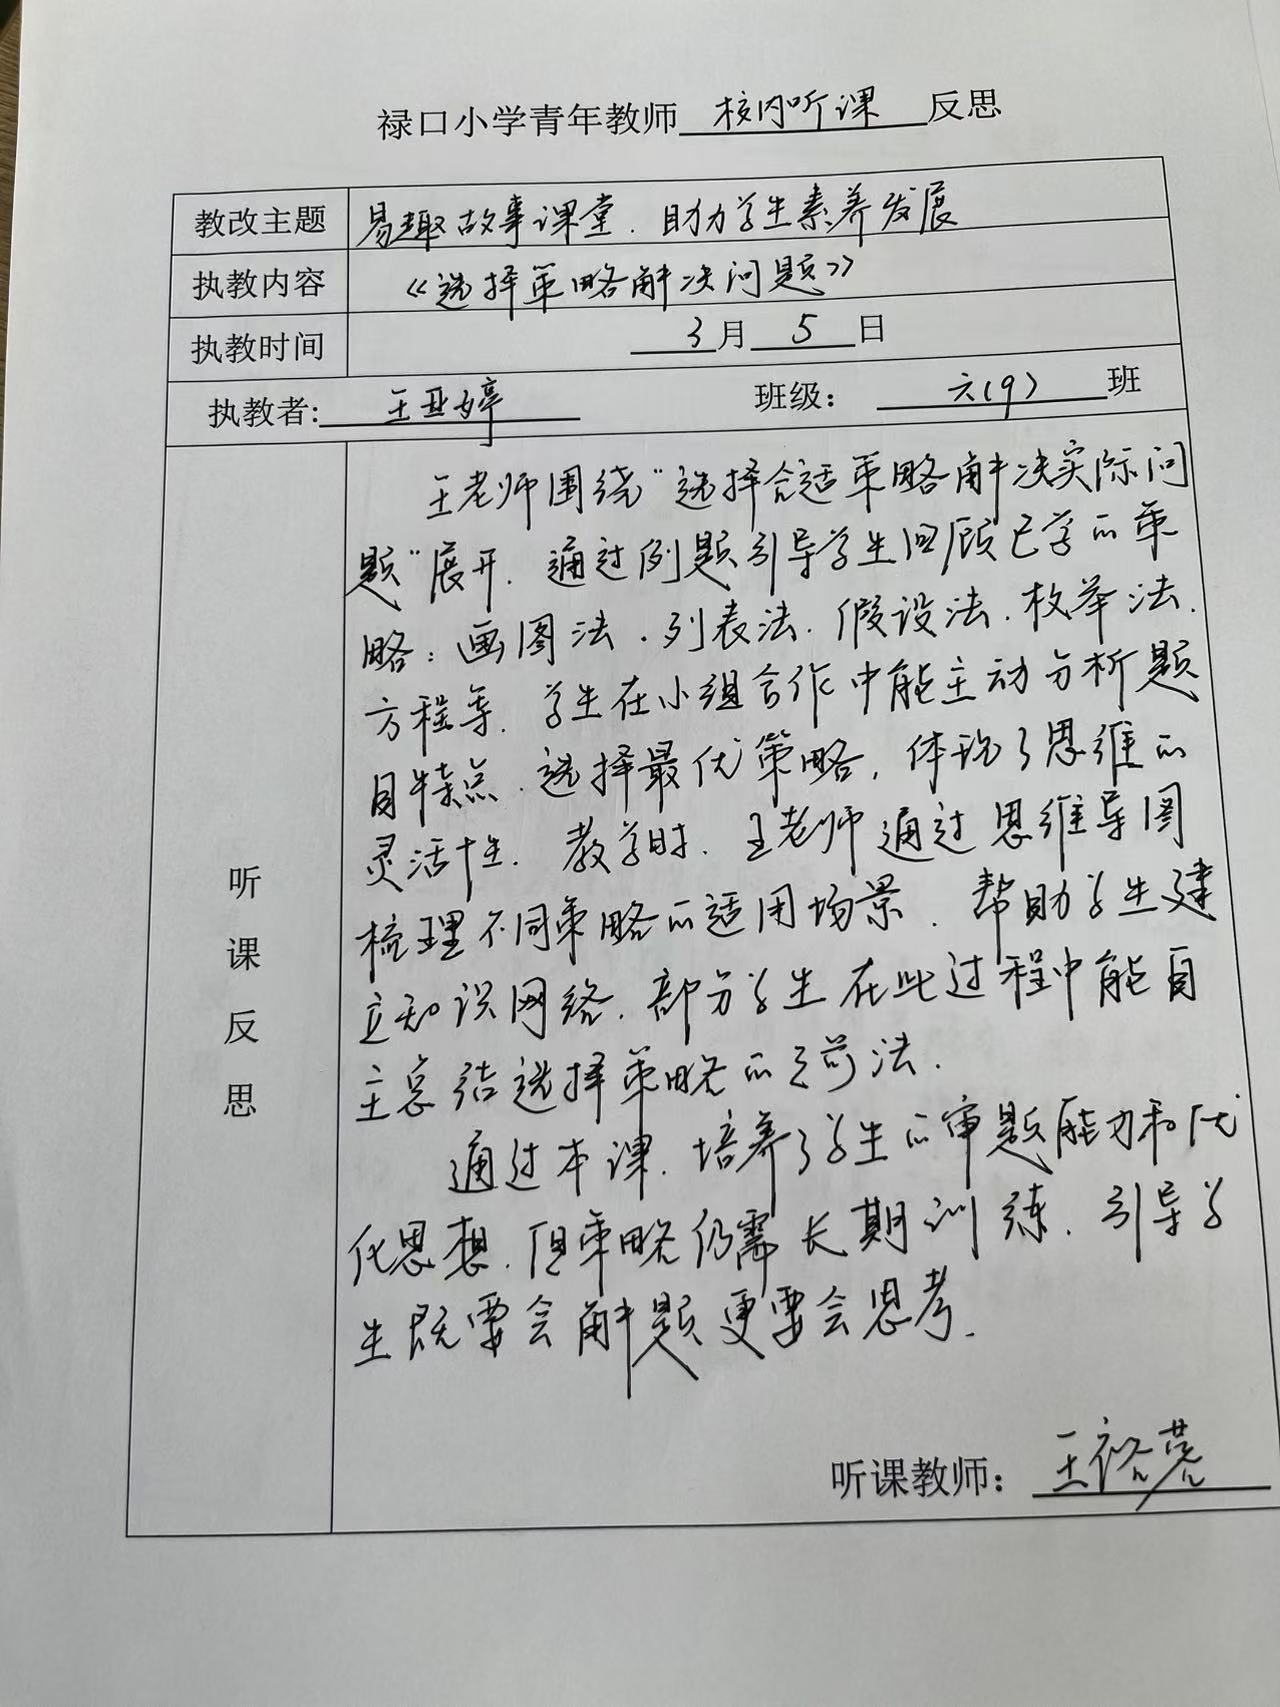 禄口小学青年教师 校内听课 反思
教改主题 易趣故事课堂.助力学生素养发展
执教内容 《选择策略解决问题》
执教时间 3月5日
执教者: 王亚婷 班级: 六(9)班
听课反思
王老师围绕“选择合适策略解决实际问
题”展开.通过例题引导学生回顾已学的策
略:画图法.列表法.假设法.枚举法.
方程等.学生在小组合作中能主动分析题
目特点.选择最优策略,体现了思维的
灵活性.教学时.王老师通过思维导图
梳理不同策略的适用场景.帮助学生建
立知识网络.部分学生在此过程中能自
主总结选择策略的方法.
通过本课.培养了学生的审题能力和优
化思想.但策略仍需长期训练.引导学
生既要会解题更要会思考.
听课教师: 王